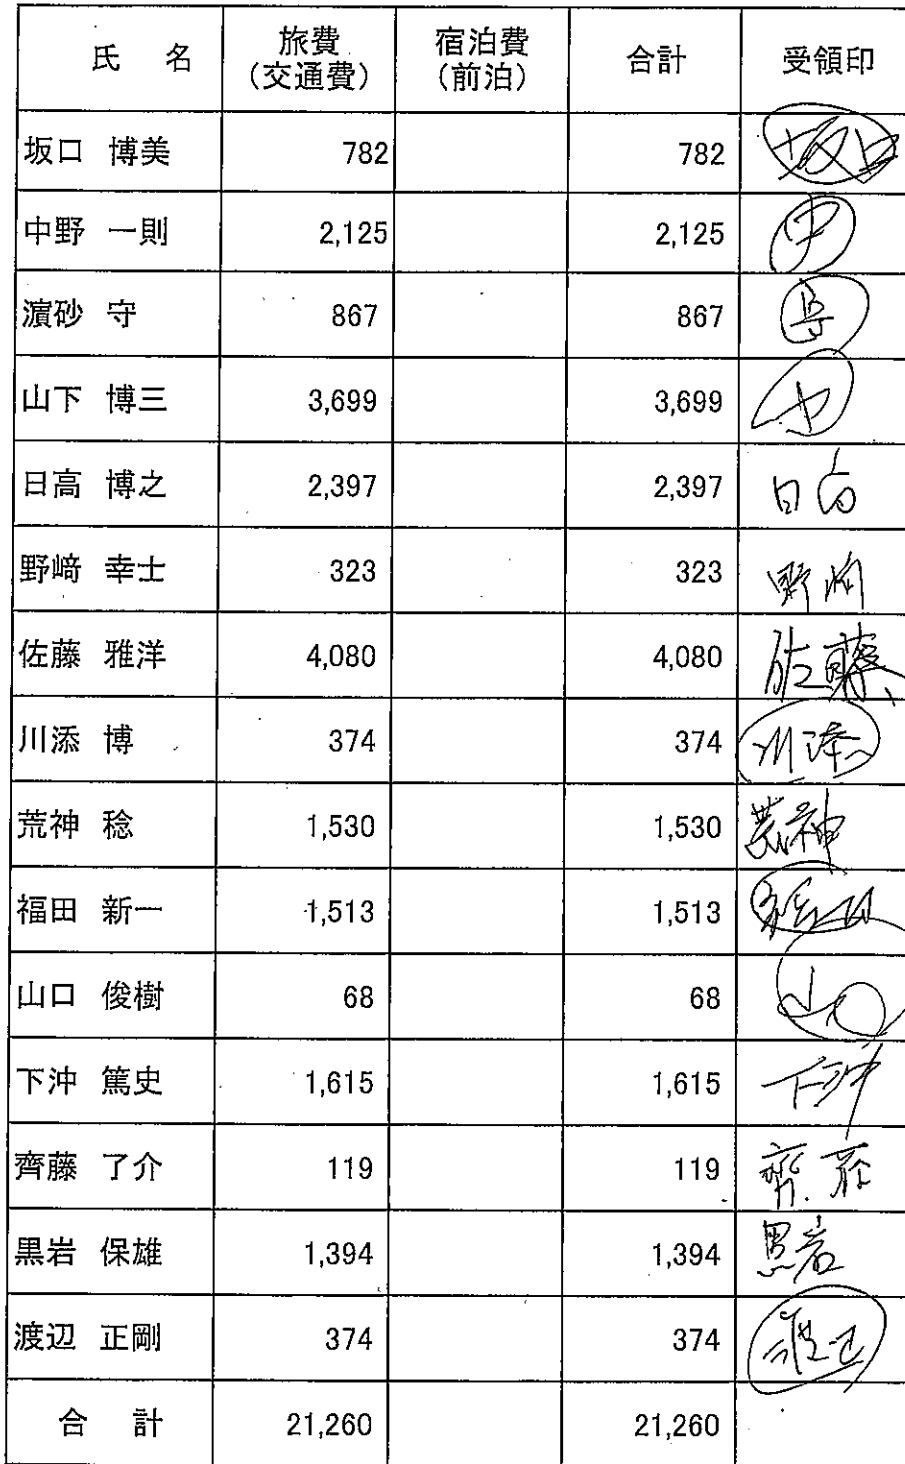 氏　名　旅費（交通費）　宿泊費（前泊）　合計　受領印
坂口　博美　782　782　坂口
中野　一則　2,125　2,125　中
濵砂　守　867　867　守
山下　博三　3,699　3,699　山
日高　博之　2,397　2,397　日高
野﨑　幸士　323　323　野﨑
佐藤　雅洋　4,080　4,080　佐藤
川添　博　374　374　川添
荒神　稔　1,530　1,530　荒神
福田　新一　1,513　1,513　福田
山口　俊樹　68　68　山口
下沖　篤史　1,615　1,615　下沖
齊藤　了介　119　119　齊藤
黒岩　保雄　1,394　1,394　黒岩
渡辺　正剛　374　374　渡辺
合　計　21,260　21,260